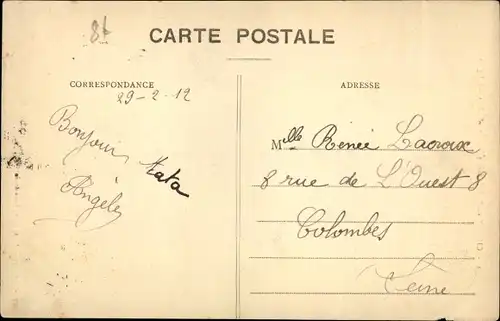 8t
CARTE POSTALE
CORRESPONDANCE
ADRESSE
29-2-12
Bonjour
tata
Angèle
Mlle Renée Lacroix
8 rue de L'Ouest 8
Colombes
Seine